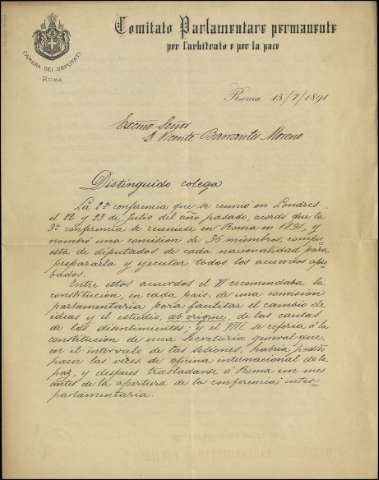 Comitato Parlamentare permanente
per l'arbitrato e per la pace
CAMERA DEI DEPUTATI
ROMA
Roma 15/7/1891
Excmo Señor
D. Vicente Barrantes Moreno
Distinguido colega
La 2ª conferencia que se reunió en Londres
el 22 y 23 de Julio del año pasado, acordó que la
3ª conferencia se reuniese en Roma en 1891, y
nombró una comision de 36 miembros, compu-
esta de diputados de cada nacionalidad, para
prepararla y ejecutar todos los acuerdos apro-
bados.
Entre estos acuerdos el VI recomendaba la
constitucion, en cada pais, de una comision
parlamentaria para facilitar el cambio de
ideas y el estudio, ab origine, de las causas
de los disentimientos; y el VIII se referia á la
constitucion de una Secretaría general que,
en el intervalo de las sesiones, habria podido
hacer las veces de oficina internacional de la
paz, y despues trasladarse á Roma un mes
antes de la apertura de la conferencia inter-
parlamentaria.